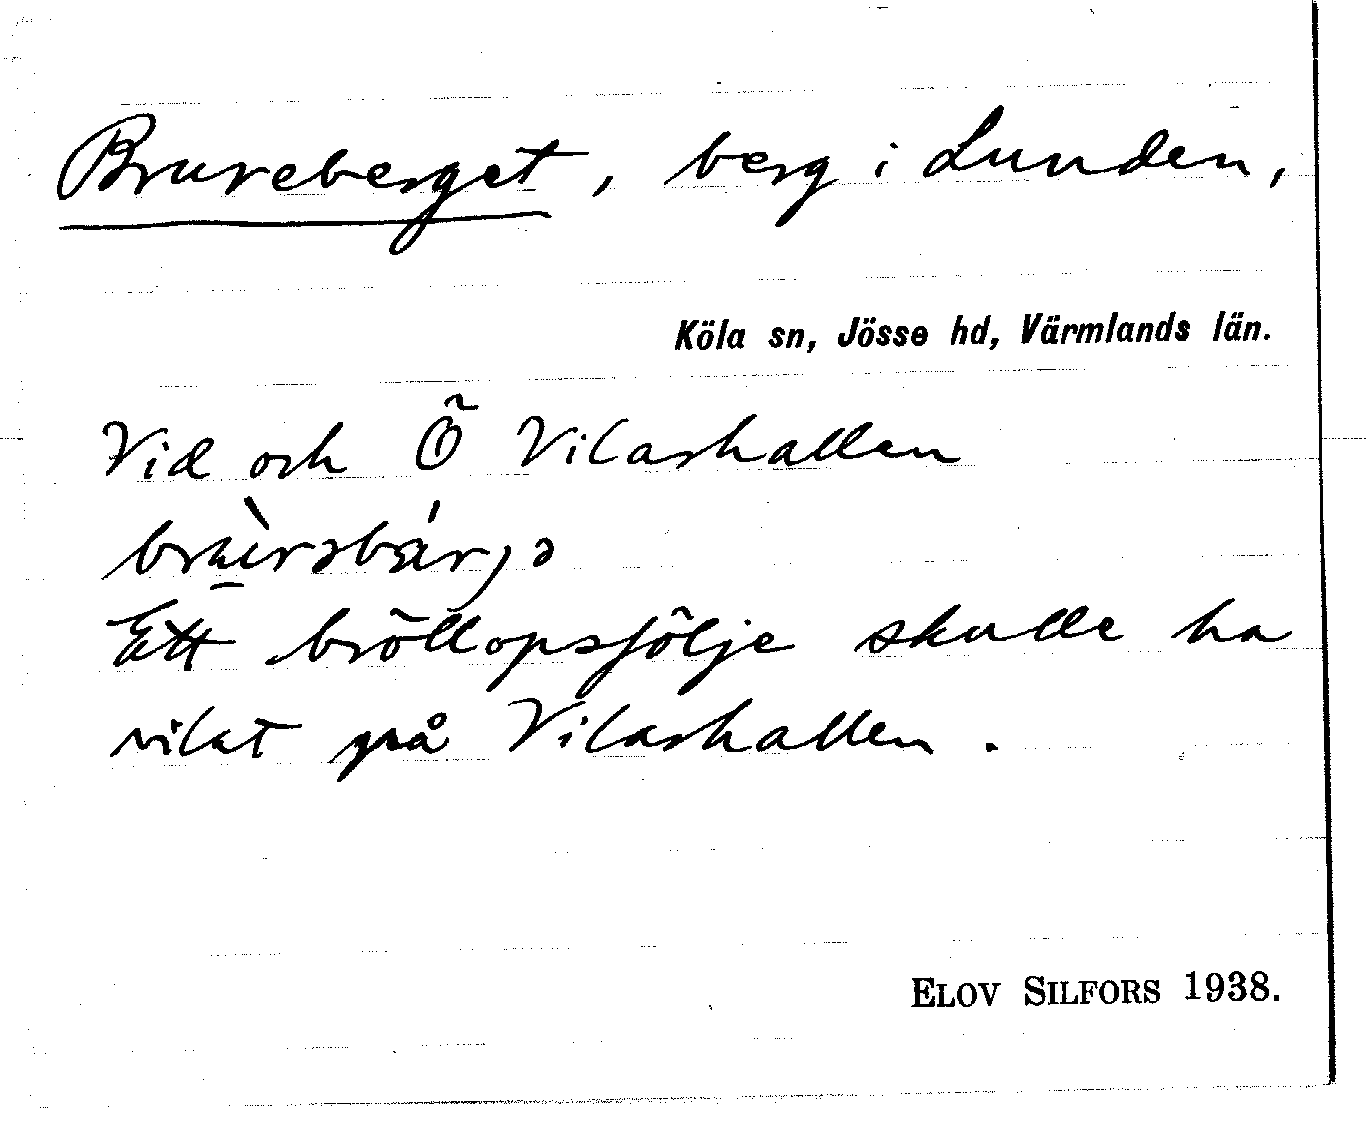 Brureberget, berg i Lunden,
Köla sn, Jösse hd, Värmlands län.
Vid och Ö Vilarhallen
Ett bröllopsfölje skulle ha
vilat på Vilarhallen.
ELOV SILFORS 1938.